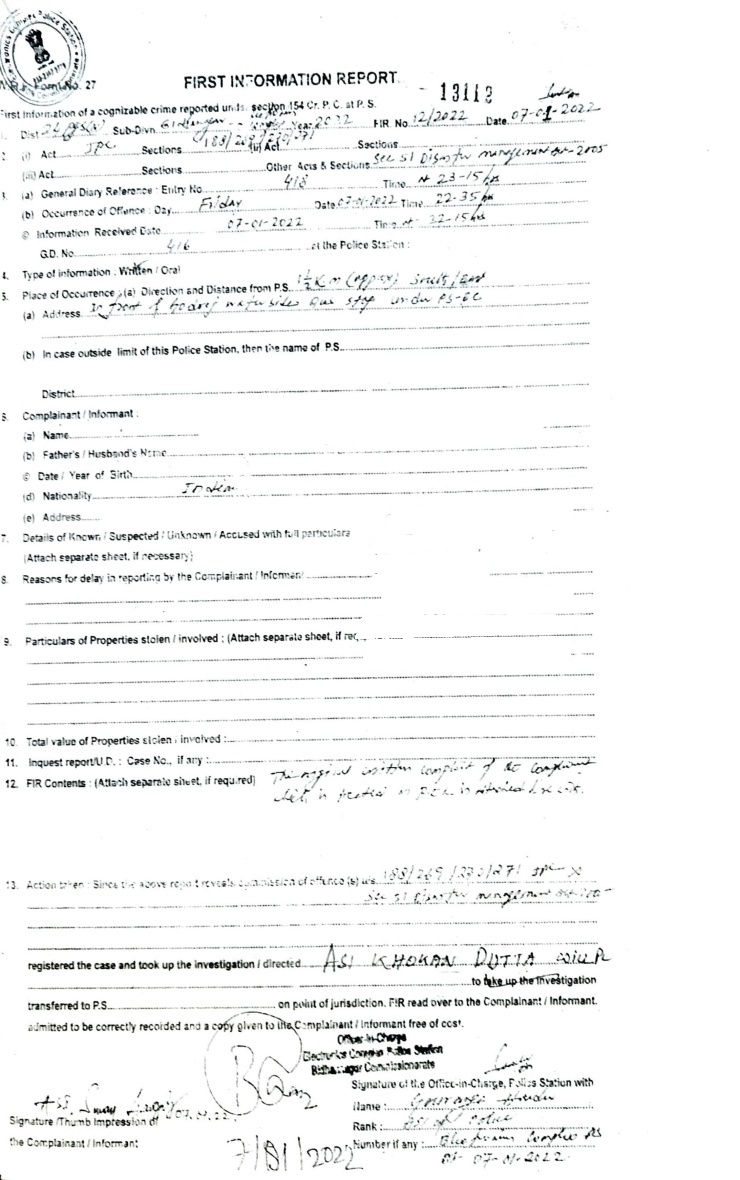 Electronics Complex Police Station
W.B. Form No. 27
FIRST INFORMATION REPORT
13112
First Information of a cognizable crime reported under section 154 Cr. P. C. at P. S.
1. Dist. 24 Pgs(N) Sub-Divn. Bidhannagar Year 2022 FIR No. 12/2022 Date 07-01-2022
2. (i) Act IPC Sections 188/269/270/271 (ii) Act Sections
(iii) Act Sections Other Acts & Sections Sec 51 Disaster management Act-2005
3. (a) General Diary Reference : Entry No. 418 Time At 23-15 hrs
(b) Occurrence of Offence : Day Friday Date 07-01-2022 Time 22-35 hrs
© Information Received Date 07-01-2022 Time at 22-15 hrs
G.D. No. 416 at the Police Station :
4. Type of information : Written / Oral
5. Place of Occurrence : (a) Direction and Distance from P.S. 1½ Km (appx)
(a) Address In front of Godrej waterside Bus stop under PS-EC
(b) In case outside limit of this Police Station, then the name of P.S.
District
6. Complainant / Informant :
(a) Name
(b) Father's / Husband's Name
© Date / Year of Birth
(d) Nationality Indian
(e) Address
7. Details of Known / Suspected / Unknown / Accused with full particulars
(Attach separate sheet, if necessary)
8. Reasons for delay in reporting by the Complainant / Informant
9. Particulars of Properties stolen / involved : (Attach separate sheet, if req
10. Total value of Properties stolen / involved :
11. Inquest report/U.D. : Case No., if any :
12. FIR Contents : (Attach separate sheet, if required) The original written complaint of the complainant
which is treated as F.I.R. is attached
13. Action taken : Since the above report reveals commission of offence (s) u/s. 188/269/270/271 IPC
Sec 51 Disaster management Act-2005
registered the case and took up the investigation / directed ASI KHOKAN DUTTA
to take up the investigation
transferred to P.S. on point of jurisdiction. FIR read over to the Complainant / Informant.
admitted to be correctly recorded and a copy given to the Complainant / Informant free of cost.
Officer-in-Charge
Electronics Complex Police Station
Bidhannagar Commissionerate
Signature of the Office-in-Charge, Police Station with
Name :
Rank : of Police
Signature /Thumb Impression of
the Complainant / Informant
Number if any : Electronics Complex PS
Dt- 07-01-2022
7/01/2022